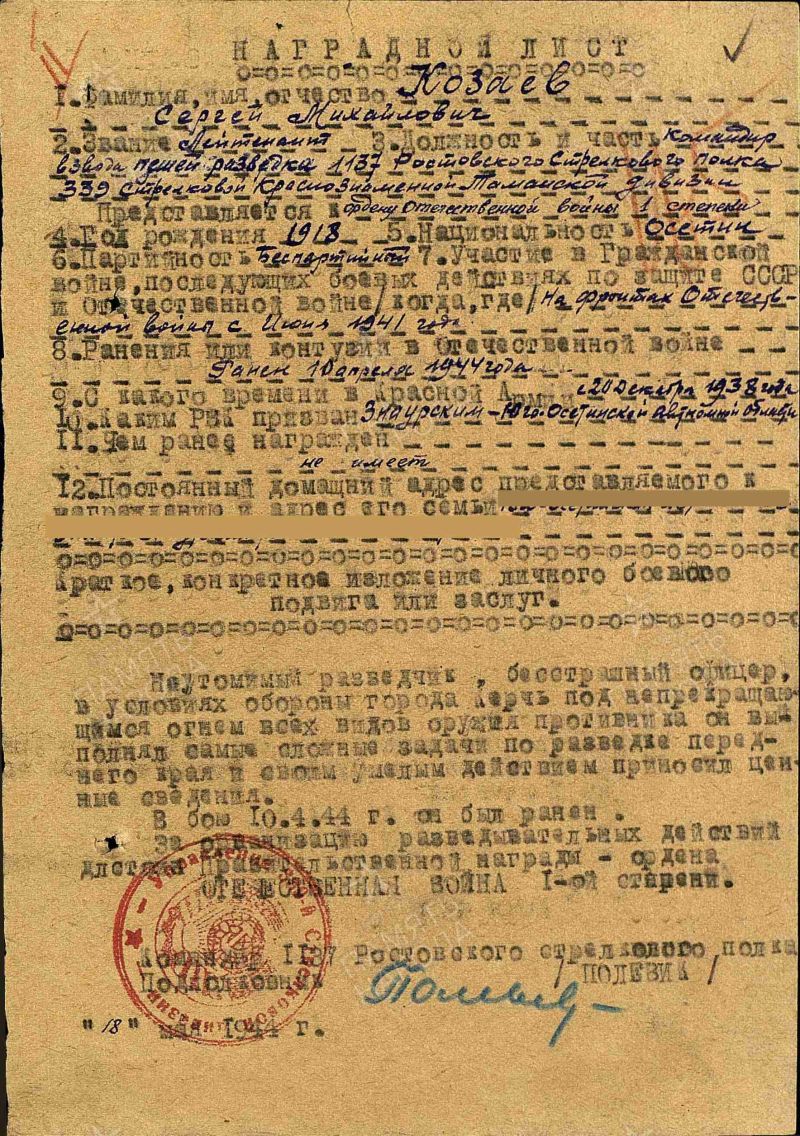 НАГРАДНОЙ ЛИСТ
=о=о=о=о=о=о=о=о=о=о=о=о=о
1. Фамилия, имя, отчество Козаев
Сергей Михайлович
2. Звание Лейтенант 3. Должность и часть командир
взвода пешей разведка 1137 Ростовского Стрелкового полка
339 стрелковой Краснознаменной Таманской дивизии
Представляется к ордену Отечественной войны 1 степени
4. Год рождения 1918 5. Национальность Осетин
6. Партийность Беспартийный 7. Участие в Гражданской
войне, последующих боевых действиях по защите СССР
и Отечественной войне /когда, где/ На фронтах Отечеств-
енной войны с Июня 1941 года.
8. Ранения или контузии в Отечественной войне
Ранен 10 апреля 1944 года
9. С какого времени в Красной Армии с 20 Декабря 1938 года
10. Каким РВК призван Знаурским - Юго-Осетинской Автномной области
11. Чем ранее награжден
не имеет
12. Постоянный домашний адрес представляемого к
награждению и адрес его семьи
=о=о=о=о=о=о=о=о=о=о=о=о=о=о=о=о=о=о
Краткое, конкретное изложение личного боевого
подвига или заслуг.
=о=о=о=о=о=о=о=о=о=о=о=о=о=о=о=о=о=о
Неутомимый разведчик , бесстрашный офицер,
в условиях обороны города Керчь под непрекращаю-
щимся огнем всех видов оружия противника он вы-
полнял самые сложные задачи по разведке перед-
него края и своим умелым действием приносил цен-
ные сведения.
В бою 10.4.44 г. он был ранен .
За организацию разведывательных действий
достоин Правительственной награды - ордена
ОТЕЧЕСТВЕННАЯ ВОЙНА I-ой старени.
Командир 1137 Ростовского стрелкового полка
Подполковник / ПОЛЕВИК /
"18" мая 1944 г.